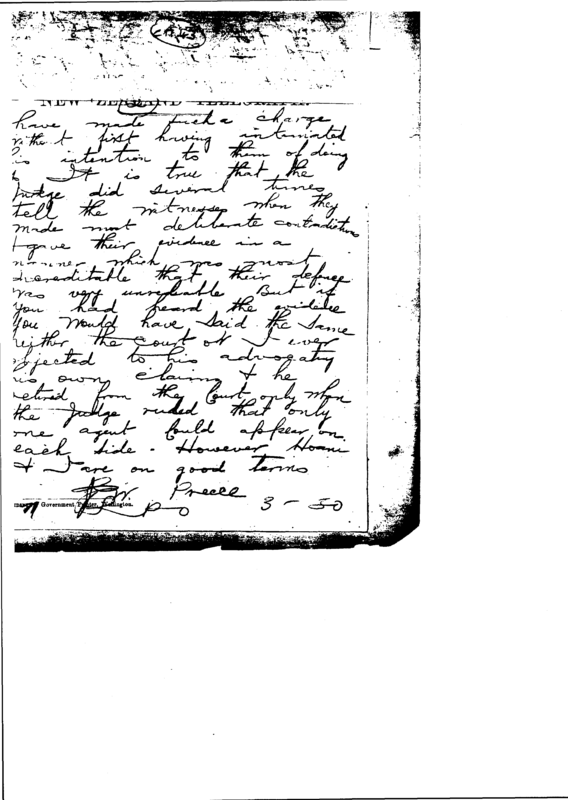 NEW ZEALAND TELEGRAPH.
have made such a charge
without first having intimated
his intention to them of doing
so It is true that the
Judge did several times
tell the witnesses when they
made most deliberate contradictions
& gave their evidence in a
manner which was most
discreditable that their
was very unreliable But if
you had heard the evidence
you would have said the same
neither the Court or I ever
objected to his advocating
his own claims & he
retired from the Court only when
the Judge ruled that only
one agent could appear on
each side. However Hoani
& I are on good terms
Preece
Government Printer, Wellington.
3-50